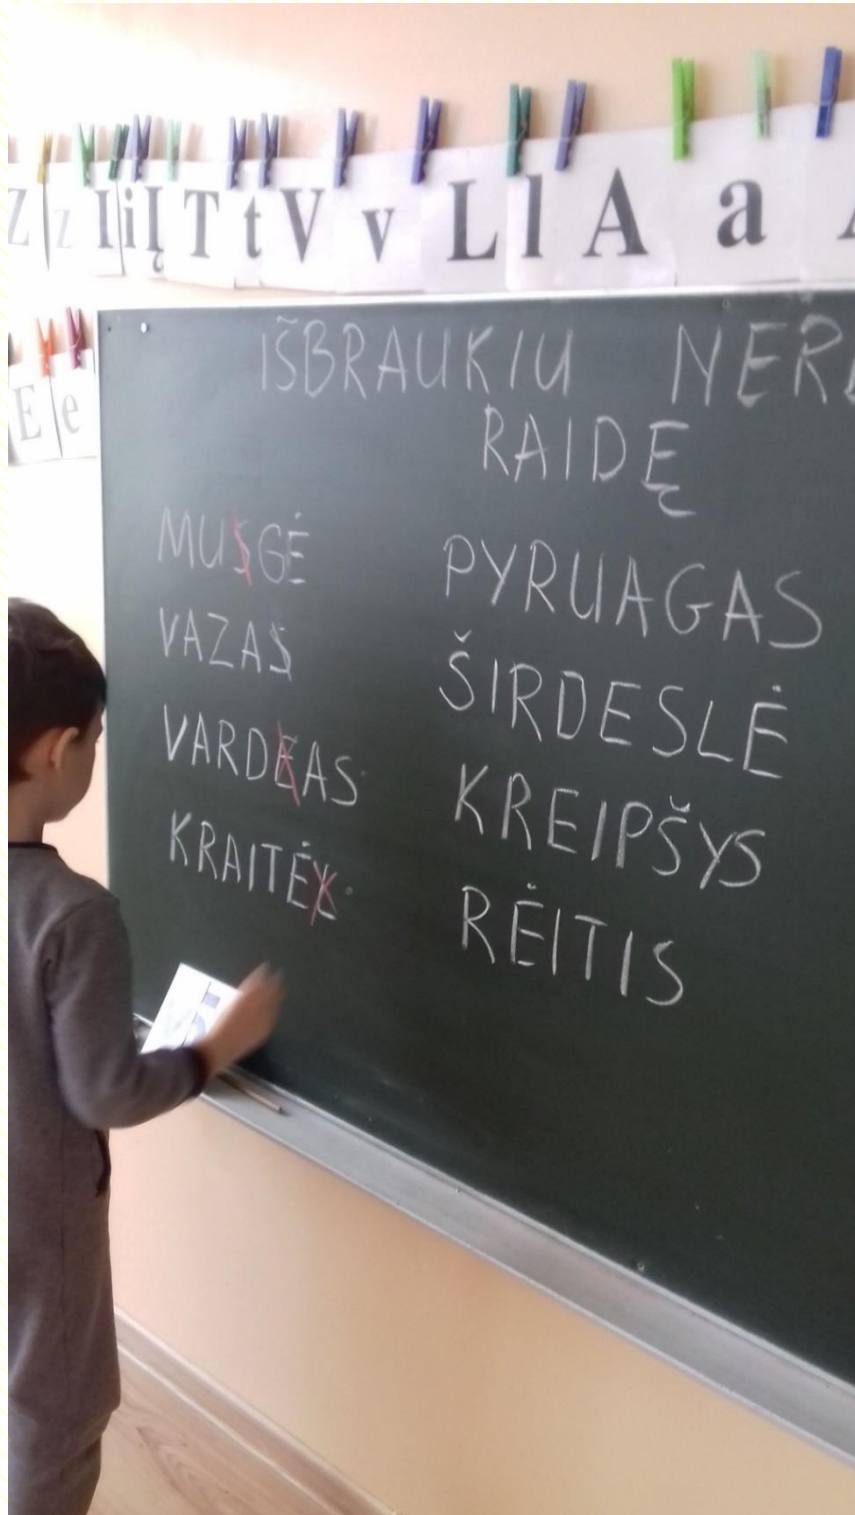 Z z I i Į T t V v L l A a
E e
IŠBRAUKIU
RAIDĘ
MUSGĖ
VAZAS
VARDEAS
KRAITĖ
PYRUAGAS
ŠIRDESLĖ
KREIPŠYS
RĖITIS